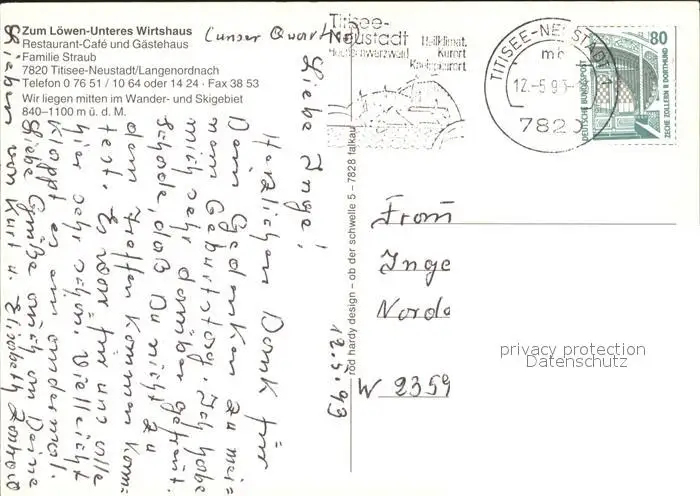 Zum Löwen-Unteres Wirtshaus
Restaurant-Café und Gästehaus
Familie Straub
7820 Titisee-Neustadt/Langenordnach
Telefon 0 76 51 / 10 64 oder 14 24 · Fax 38 53
Wir liegen mitten im Wander- und Skigebiet
840–1100 m ü. d. M.
(unser Quartier)
Titisee-
Neustadt
Hochschwarzwald
Heilklimat.
Kurort
Kneippkurort
TITISEE-NEUSTADT
mb
12.-5.93-
7820
DEUTSCHE BUNDESPOST
80
ZECHE ZOLLERN II DORTMUND
12.5.93
Liebe Inge!
Herzlichen Dank für
Dein Gedenken zu mei=
nem Geburtstag. Ich habe
mich sehr darüber gefreut.
Schade, daß Du nicht zu
dem Treffen kommen konn=
test. Es war für uns alle
hier sehr schön. Vielleicht
klappt es ein andermal.
Liebe Grüße auch an Deine
Lieben von Kurt u. Elisabeth
rod hardy design – ob der schwelle 5 – 7828 falkau
Frau
Inge
Norda
W 2359
privacy protection
Datenschutz